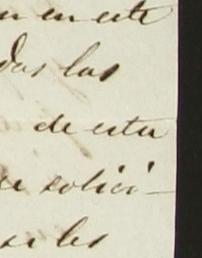 en este
das las
de esta
se solici-
se les